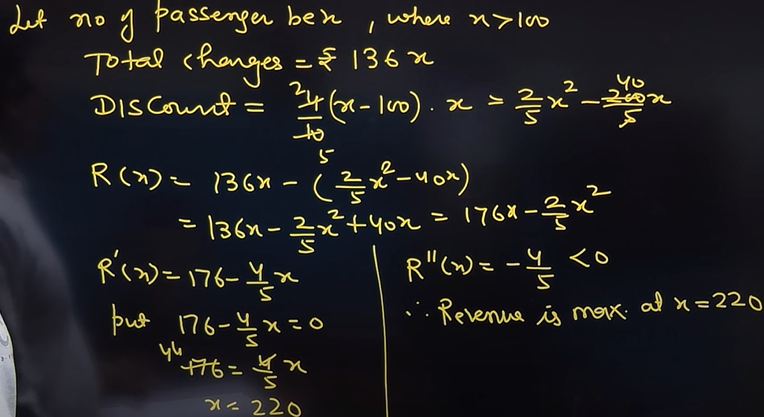 Let no of passenger be x, where x>100
Total charges = ₹ 136x
Discount = 4/10 (x-100) . x = 2/5 x² - 200/5 x
2
5
40
R(x) = 136x - (2/5 x² - 40x)
= 136x - 2/5 x² + 40x = 176x - 2/5 x²
R'(x) = 176 - 4/5 x
put 176 - 4/5 x = 0
44
176 = 4/5 x
x = 220
R''(x) = - 4/5 < 0
∴ Revenue is max. at x = 220